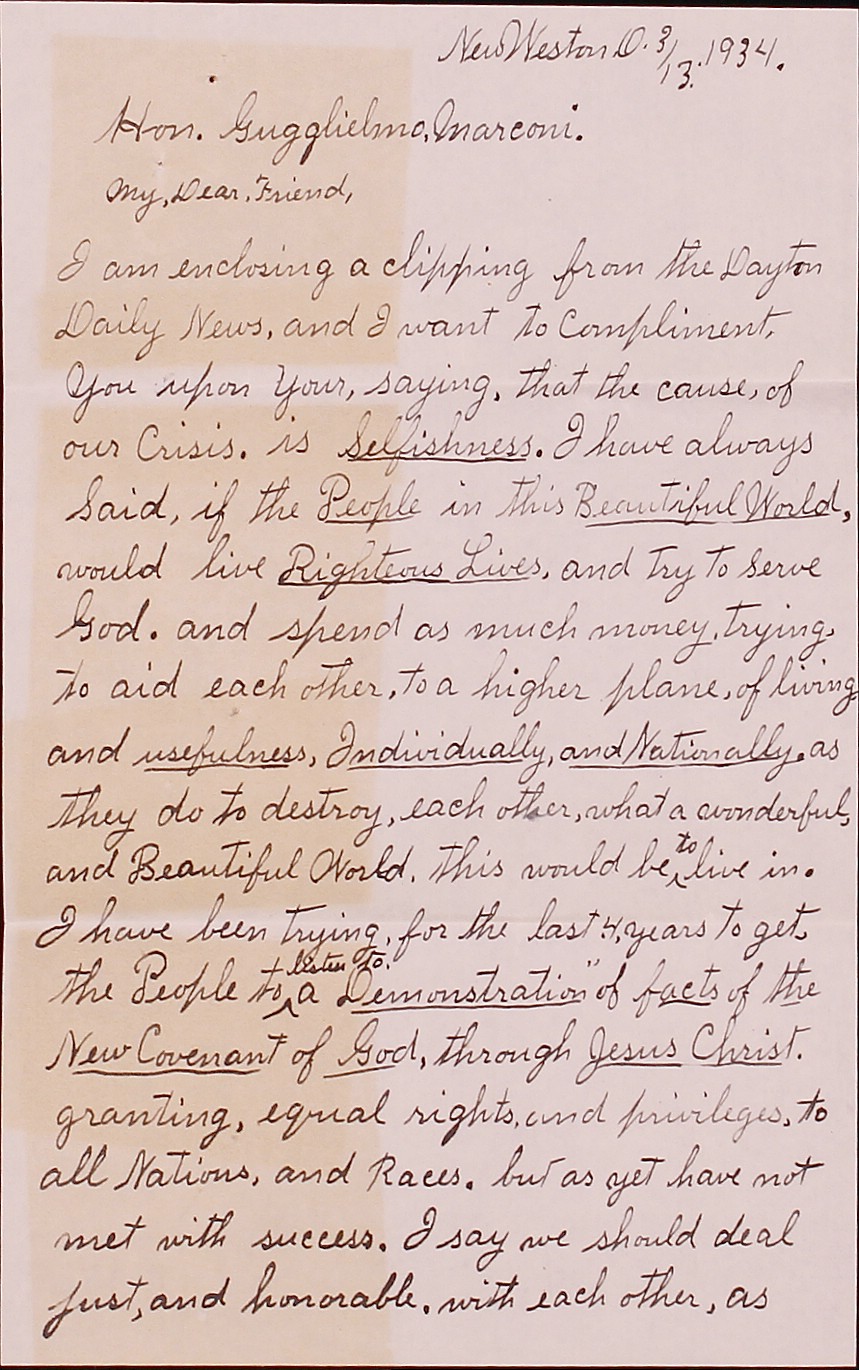 New Weston O. 3/13. 1934.
Hon. Gugglielmo, Marconi.
My, Dear, Friend,
I am enclosing a clipping from the Dayton
Daily News, and I want to Compliment,
You upon Your, saying, that the cause, of
our Crisis. is Selfishness. I have always
Said, if the People in this Beautiful World,
would live Righteous Lives, and try to serve
God. and spend as much money, trying,
to aid each other, to a higher plane, of living
and usefulness, Individually, and Nationally, as
they do to destroy, each other, what a wonderful,
and Beautiful World, this would be, to live in.
I have been trying, for the last 4, years to get,
the People to, listen to. a Demonstration" of facts of the
New Covenant of God, through Jesus Christ.
granting, equal rights, and privileges, to
all Nations, and Races. but as yet have not
met with success. I say we should deal
just, and honorable, with each other, as